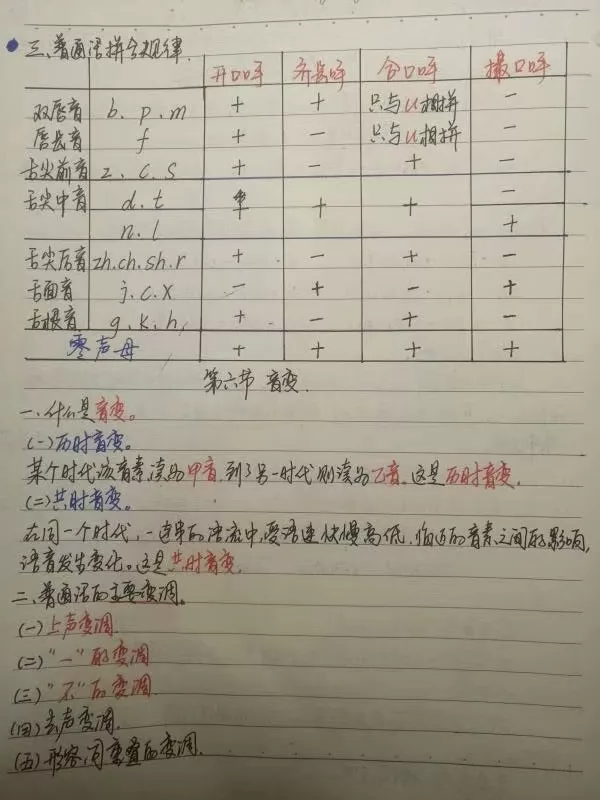 三、普通话拼合规律.
开口呼 齐齿呼 合口呼 撮口呼
双唇音 b.p.m + + 只与u相拼 -
唇齿音 f + - 只与u相拼 -
舌尖前音 z.c.s + - + -
舌尖中音 d.t + + + -
n.l +
舌尖后音 zh.ch.sh.r + - + -
舌面音 j.c.x - + - +
舌根音 g.k.h, + - + -
零声母 + + + +
第六节 音变.
一、什么是音变。
(一)历时音变。
某个时代该音素读为甲音,到了另一时代则读为乙音。这是历时音变.
(二)共时音变。
在同一个时代,一连串的语流中,受语速快慢高低,临近的音素之间的影响,
语音发生变化。这是共时音变.
二、普通话的主要变调。
(一)上声变调.
(二)"一"的变调
(三)"不"的变调.
(四)去声变调.
(五)形容词重叠的变调.